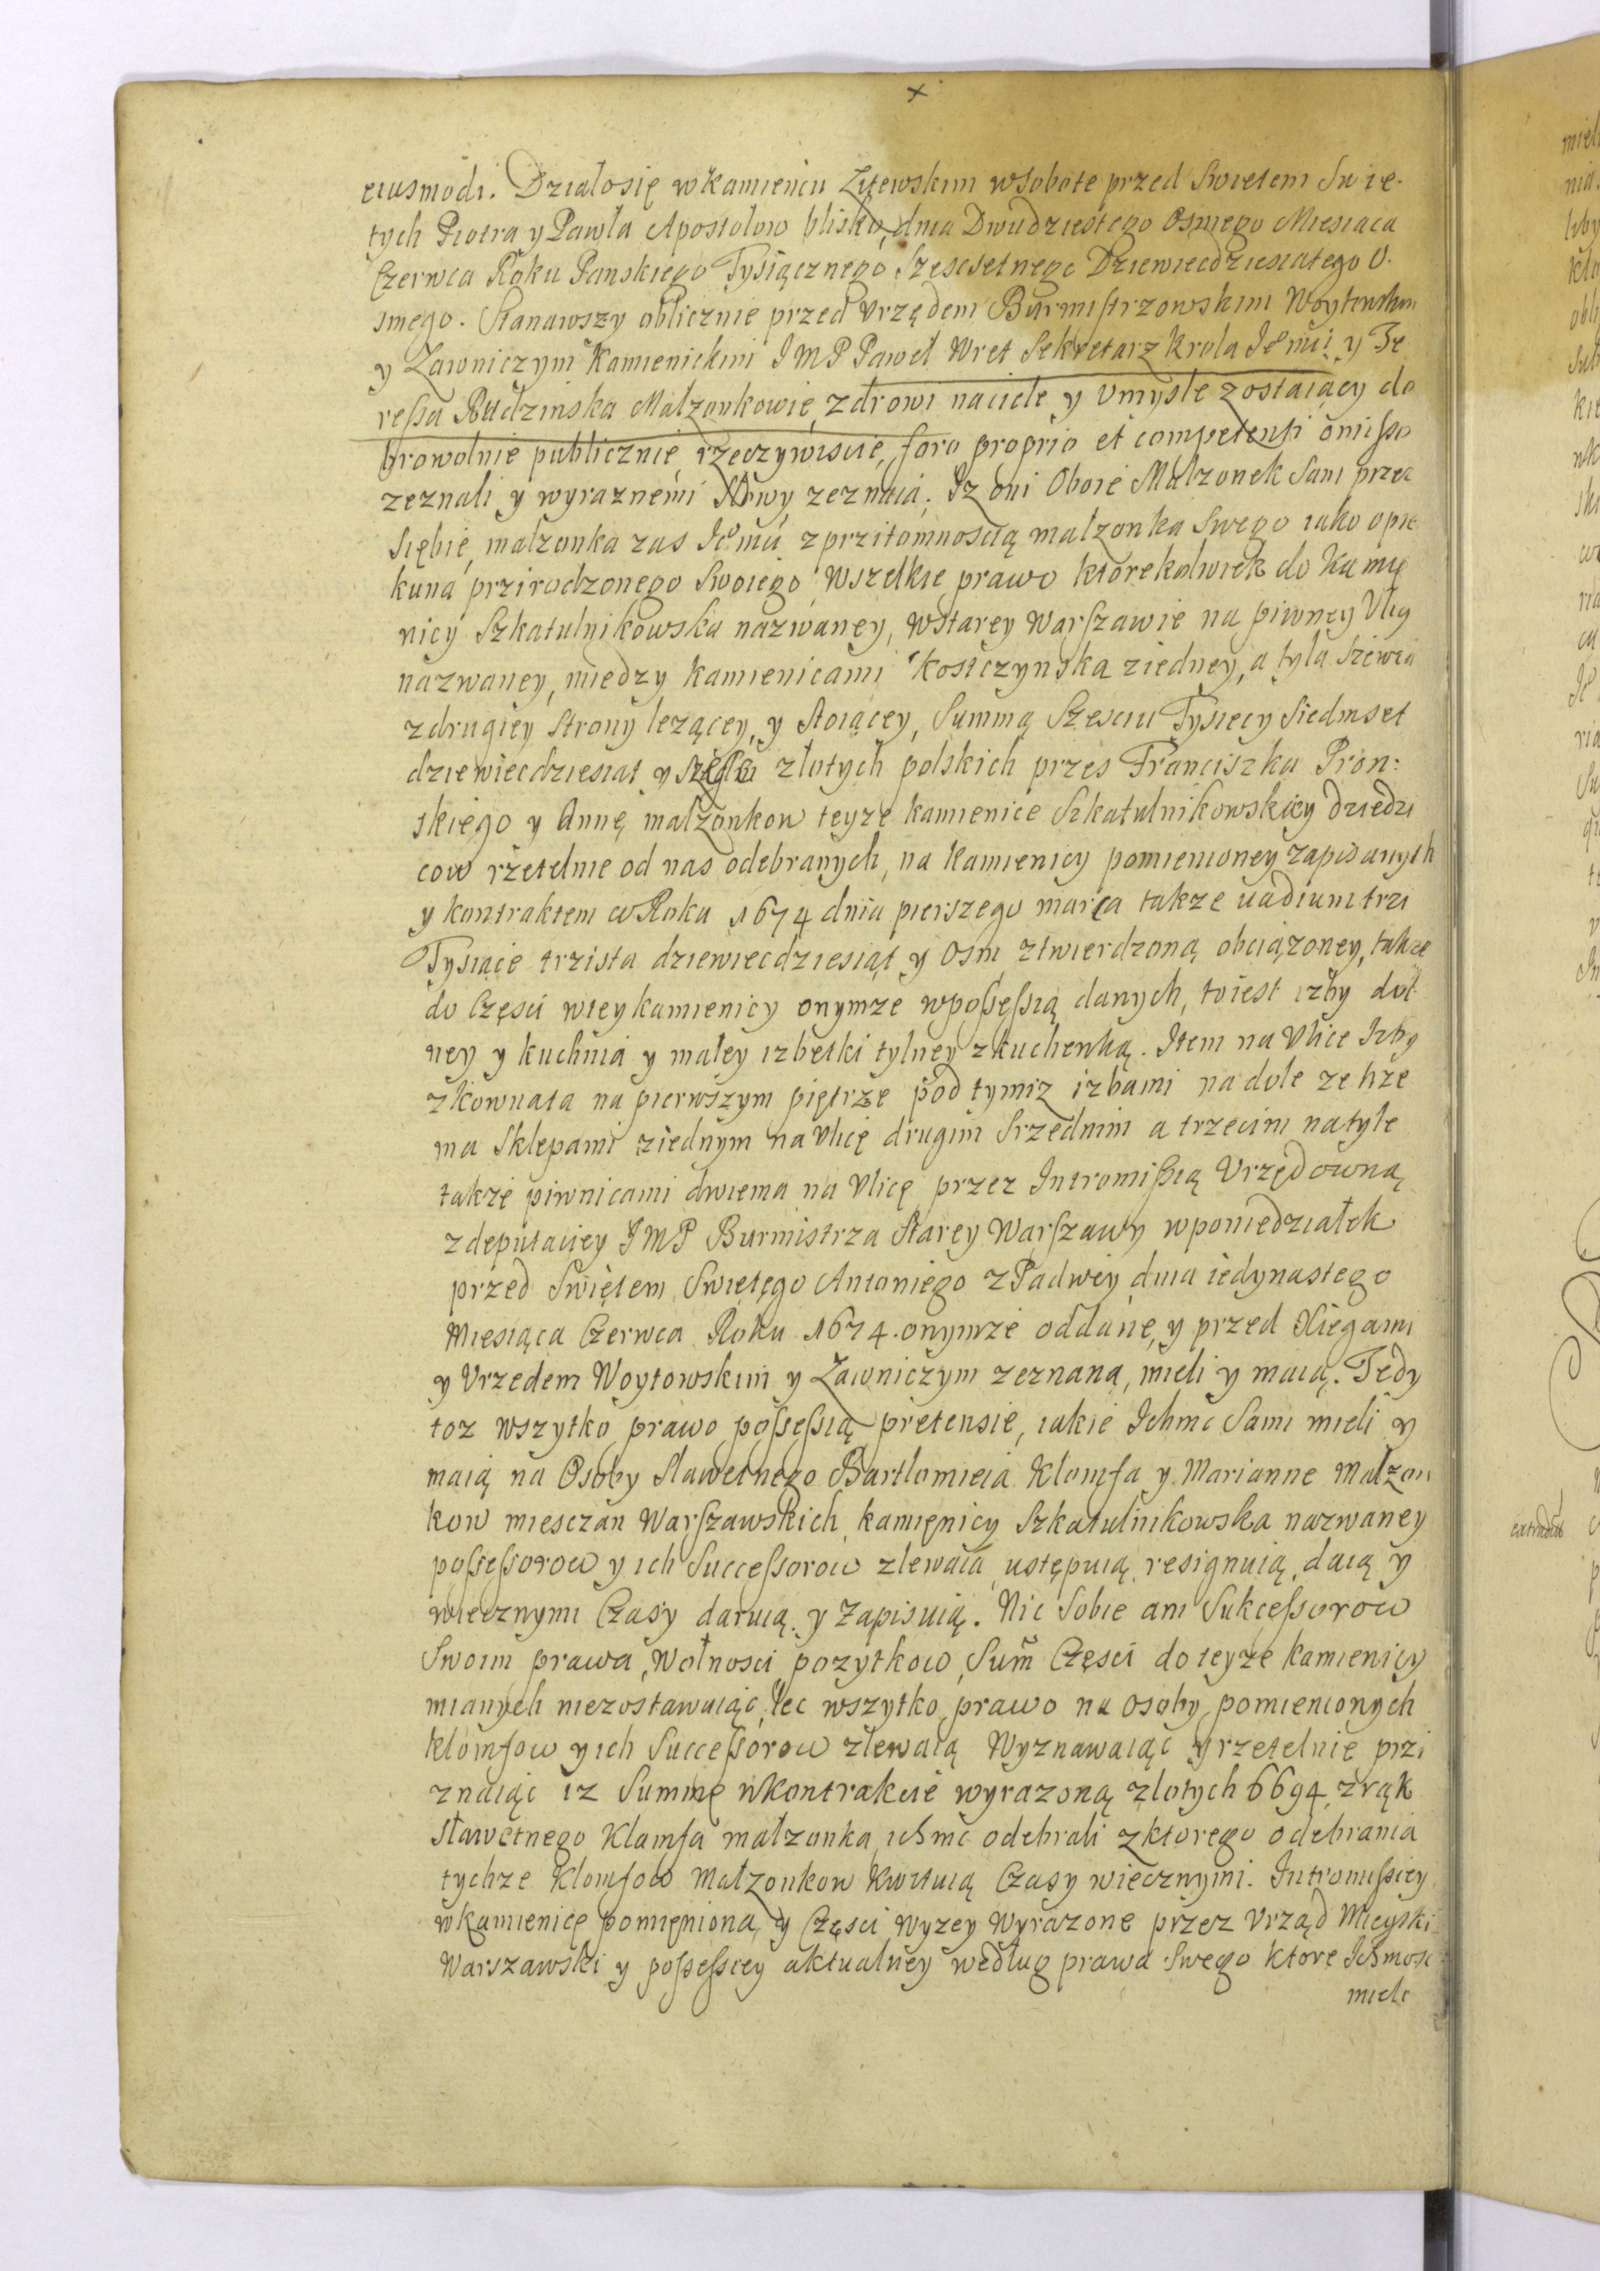 eiusmodi. Działosię wKamieńcu Litewskim wSobotę przed Swiętem Swię-
tych Piotra y Pawła Apostołow blisko, dnia Dwudziestego Osmego Miesiąca
Czerwca Roku Panskiego Tysiącznego Szescsetnego Dziewiecdziesiatego O.
smego. Stanawszy oblicznie przed Vrzędem Burmistrzowskim Woytowskim
y Ławniczym Kamienickim IMP Paweł Wret Sekretarz Krola Ie mci y Te
ressa Rudzinska Małzonkowie, zdrowi naciele y Vmysle zostaiący do
browolnie publicznie, rzeczywiscie, foro proprio et competenti omisso
zeznali y wyraznemi Słowy zeznaią. Iz oni Oboie Małzonek Sam przez
Siębie, małzonka zas Ie mci zprzitomnoscią małzonka Swego iako opie
kuna przirodzonego Swoiego, Wszelkie prawo ktorekolwiek do Kamię
nicy Szkatulnikowska nazwaney, wstarey Warszawie na piwney Vlicy
nazwaney, miedzy kamienicami Kostczynska ziedney, a tyla Szewca
zdrugiey Strony lezącey, y Stoiącey, Summą Szesciu Tysiecy Siedmset
dziewiecdziesiat y złotych polskich przes Franciszka Pron:
skiego y Annę małzonkow teyze kamienice Szkatulnikowskiey dziedzi
cow rzetelnie od nas odebranych, na kamienicy pomienioney zapisanych
y kontraktem wRoku 1674 dnia pierszego marca takze vadium trzi
Tysiące trzista dziewiecdziesiąt y Osm ztwierdzoną obciązoney, takze
do Częsci wteykamienicy onymze wpossessią danych, toiest izby dol
ney y kuchnia y małey izbetki tylney zkuchenką. Item na Vlice Izby
zkownata na pierwszym piętrze pod tymiz izbami na dole ze trze
ma Sklepami ziednym na Vlicę drugim Srzednim a trzecim natyle
takze piwnicami dwiema na Vlicę przez Intromissią Vrzędowną
zdeputaciey IMP Burmistrza Starey Warszawy wponiedziałek
przed Swiętem Swiętęgo Antoniego zPadwey dnia iedynastego
Miesiąca Czerwca Roku 1674. onymze oddane, y przed Xiegami
y Vrzedem Woytowskim y Ławniczym zeznana, mieli y maią. Tedy
toz wszytko prawo possessią pretensie, iakie Ichmc Sami mieli y
maią na Osoby Sławetnego Bartłomieia Klomfa y Marianne Małzon
kow miesczan Warszawskich kamięnicy Szkatulnikowska nazwaney
possessorow y ich Successorow zlewaią ustępuią resignuią, daią y
wiecznymi Czasy daruią. y Zapisuią. Nic Sobie ani Sukcessorow
Swoim prawa, Wolnosci pozytkow, Sum Częsci do teyze kamienicy
mianych niezostawuiąc, lec wszytko prawo na osoby pomienionych
klomfow yich Successorow zlewaią Wyznawaiąc y rzetelnie przi
znaiąc iz Summę wKontrakcie wyrazoną złotych 6694 zrąk
sławetnego Klamfa małzonka, ichmc odebrali zktorego odebrania
tychze Klomfow Małzonkow Kwituią Czasy wiecznymi. Intromissiey
wkamienicę pomięnioną y Częsci wyzey wyrazone przez Vrząd Mieyski
Warszawski y possessiey aktualney według prawa Swego ktore Ichmosc
mieli